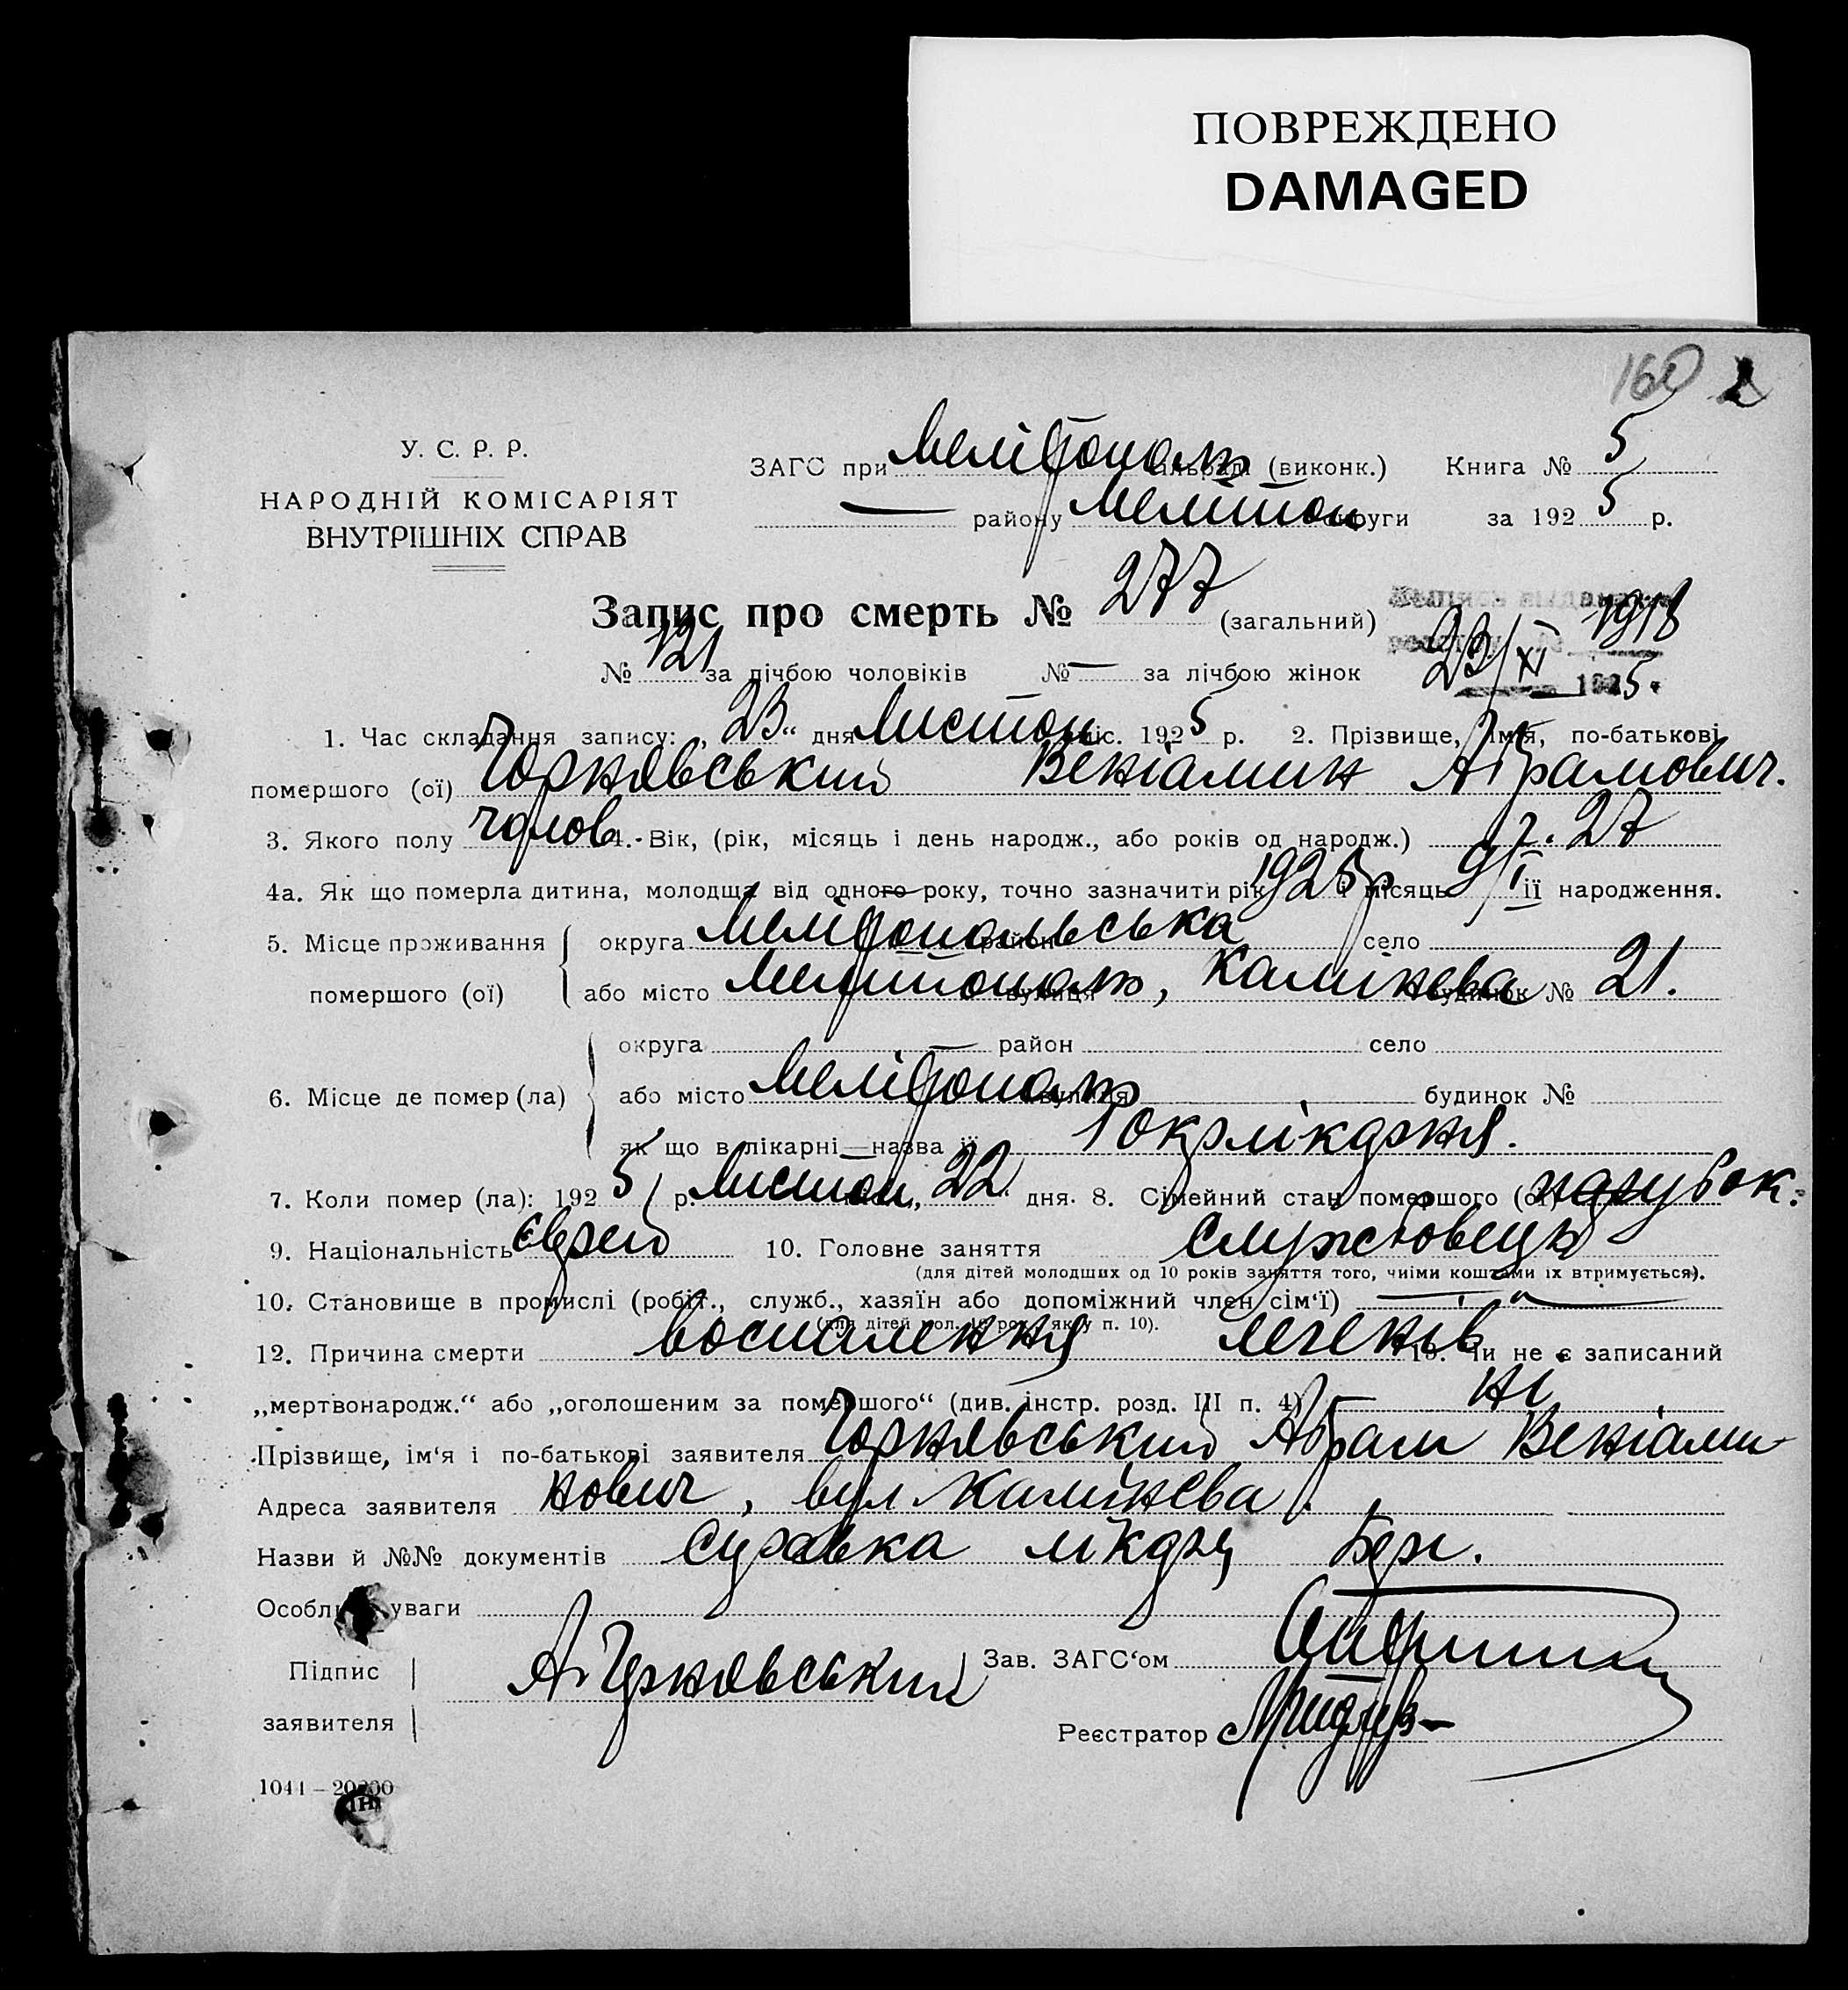 ПОВРЕЖДЕНО
DAMAGED
160
У. С. Р. Р.
НАРОДНІЙ КОМІСАРІЯТ
ВНУТРІШНІХ СПРАВ
ЗАГС при Мелітополь сільраді (виконк.) Книга № 5
— району Мелітоп округи за 1925 р.
Запис про смерть № 277 (загальний)
№ 121 за лічбою чоловіків № — за лічбою жінок
23/XI 1925.
1. Час складання запису: „23“ дня Листоп міс. 1925 р. 2. Прізвище, імя, по-батькові
помершого (ої) Чорнявський Веніамин Абрамович.
3. Якого полу чолов 4. Вік, (рік, місяць і день народж., або років од народж.) 27
4а. Як що померла дитина, молодша від одного року, точно зазначити рік 1925 р і місяць 9/I її народження.
5. Місце проживання помершого (ої) округа Мелітопольська район село
або місто Мелітополь, вулиця Калінєва будинок № 21.
6. Місце де помер (ла) округа — район село
або місто Мелітополь вулиця будинок №
як що в лікарні—назва її 1 окрлікарня.
7. Коли помер (ла): 1925 р. Листоп, 22 дня. 8. Сімейний стан помершого (ої) парубок.
9. Національність Єврей 10. Головне заняття Службовець
(для дітей молодших од 10 років заняття того, чиїми коштами їх втримується).
10. Становище в промислі (робіт., служб., хазяїн або допоміжний член сім‘ї) —
(для дітей мол. 10 рок. як у п. 10).
12. Причина смерти воспалення легенів 13. Чи не є записаний
„мертвонародж.“ або „оголошеним за помершого“ (див. інстр. розд. III п. 4) ні
Прізвище, ім‘я і по-батькові заявителя Чорнявський Абрам Веніами-
Адреса заявителя нович, вул Калінєва.
Назви й №№ документів справка лікарц
Особливі уваги
Підпис заявителя А. Чорнявський
Зав. ЗАГС‘ом
Реєстратор
1041 — 20200